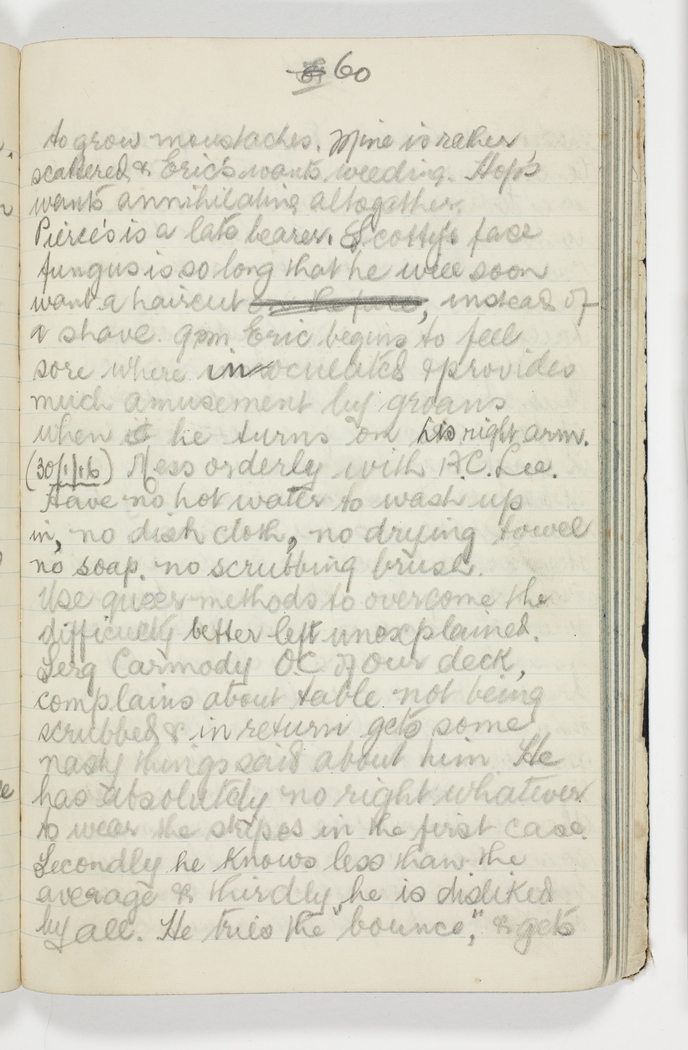 60
to grow moustaches. Mine is rather
scattered & Eric's wants weeding. Hop's
wants annihilating altogether.
Pierce's is a late bearer. Scotty's face
fungus is so long that he will soon
want a haircut, instead of
a shave. 9pm Eric begins to feel
sore where inoculated & provides
much amusement by groans
when he turns on his right arm.
(30/1/16) Mess orderly with A.C. Lee.
Have no hot water to wash up
in, no dish cloth, no drying towel
no soap. no scrubbing brush.
Use queer methods to overcome the
difficulty better left unexplained.
Serg Carmody O.C of our deck,
complains about table not being
scrubbed & in return gets some
nasty things said about him. He
has absolutely no right whatever
to wear the stripes in the first case.
Secondly he knows less than the
average & thirdly he is disliked
by all. He tries the "bounce," & gets